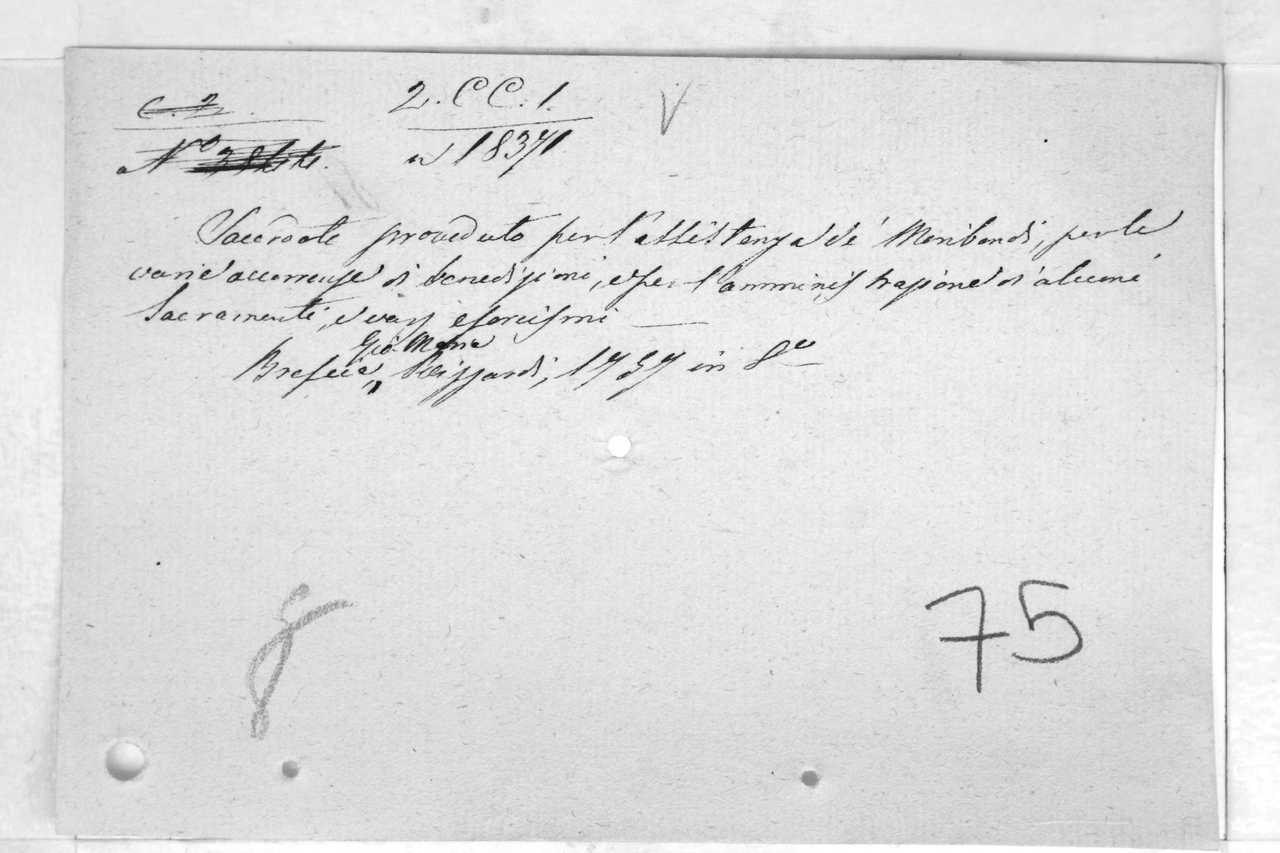 C. 2. 2. CC. 1.
N.º a 1837
Sacerdote proveduto per l'assistenza de' Moribondi, per le
varie accorrenze di benedizioni, e per l'amministrazione di alcuni
Sacramenti, e varj esorcismi —
Gio. Maria
Brescia, Rizzardi, 1737 in 8º
75